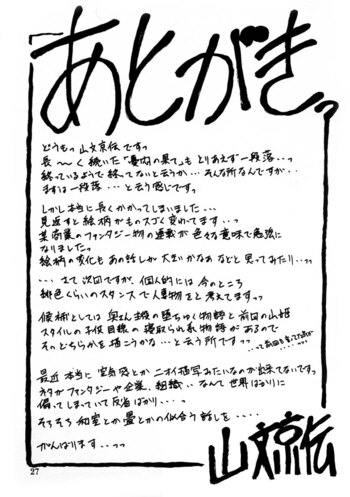 「あとがき。
どうもっ山文京伝ですっ
長〜く続いた"曼肉の果て"も とりあえず一段落..っ
終っているようで終ってないと云うか...そんな所なんですが..
まずは一段落...と云う感じですっ
しかし本当に長くかかってしまいました...
見返すと絵柄がものスゴく変わってます..っ
某商業のファンタジー物の連載が色々な意味で勉強に
なりましたっ
絵柄の変化も あの話しか大きいかなぁなどと思ってみたり..っ
... さて次回ですが、個人的には今のところ
緋色くらいのスタンスで人妻物をと考えてますっっ
候補としては奥さん主役の堕ちゆく物語と前回の山姫
スタイルの子供目線の寝取られ系物語があるので
そのどちらかを描こうかな...と云う所ですっっ
最近本当に空気感とかニオイ描写みたいなのが出来てないですっ
ネタがファンタジーや企業、組織..なんて世界ばかりに
偏ってしまっていて反省ばかり...っ
そろそろ和室とか畳とかの似合う話しを....
がんばります..っっ
山文京伝
27